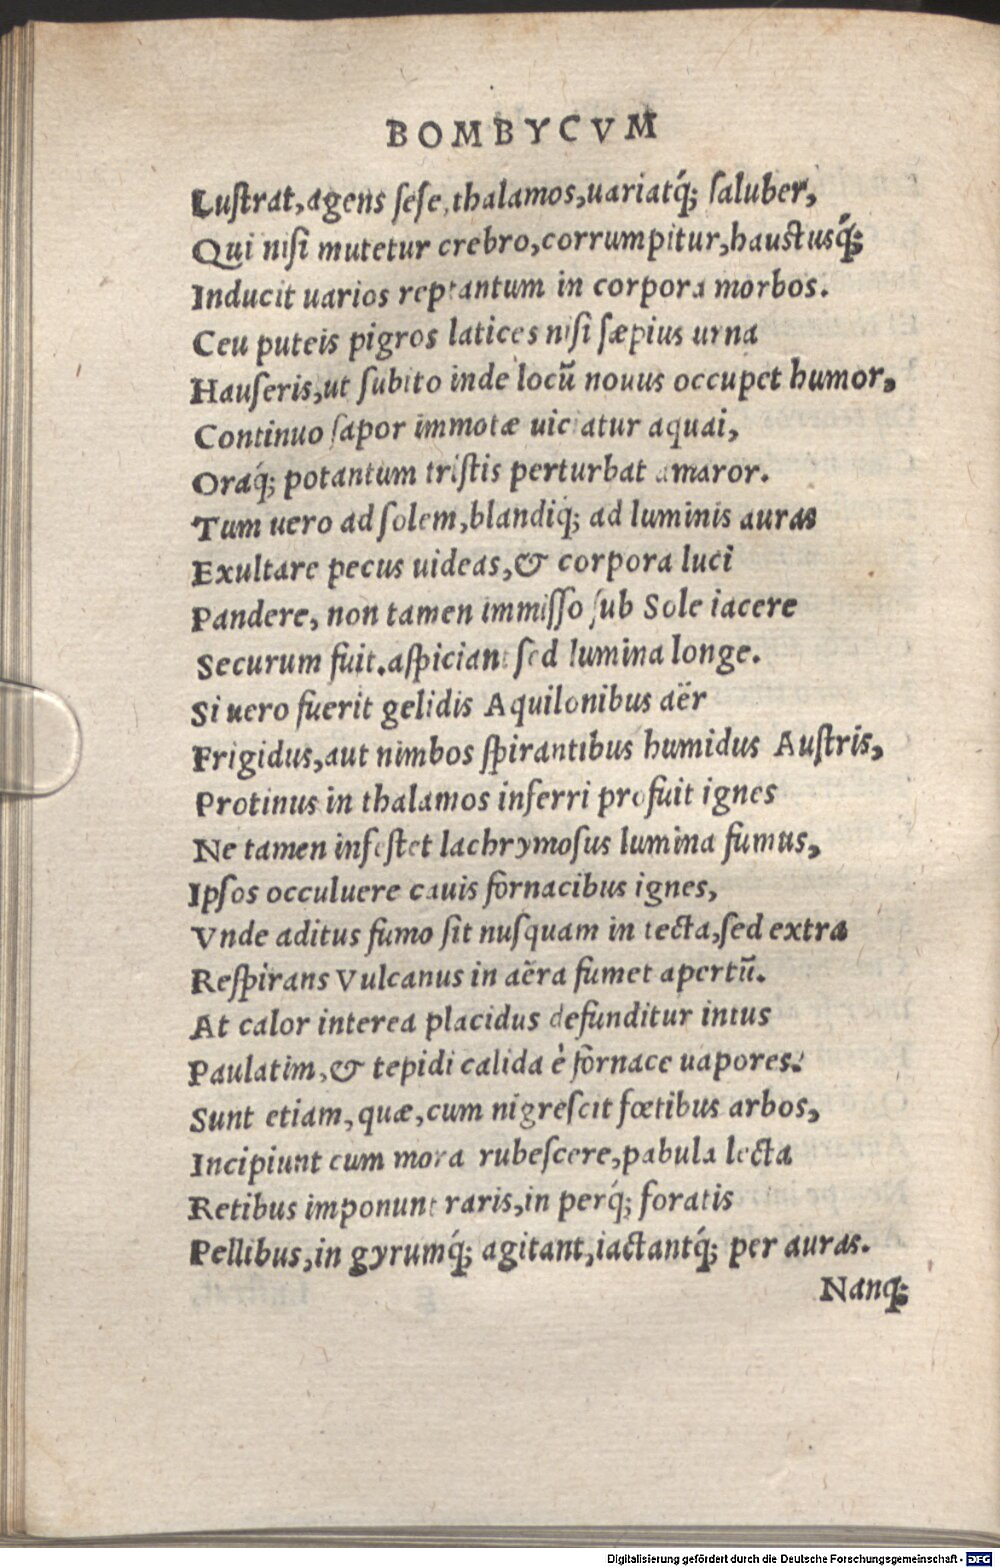 BOMBYCVM
Luſtrat, agens ſeſe, thalamos, uariatq́; ſaluber,
Qui niſi mutetur crebro, corrumpitur, hauſtusq́;
Inducit uarios reptantum in corpora morbos.
Ceu puteis pigros latices niſi ſæpius urna
Hauſeris, ut ſubito inde locū nouus occupet humor,
Continuo ſapor immotæ uiciatur aquai,
Oraq́; potantum triſtis perturbat amaror.
Tum uero ad ſolem, blandiq; ad luminis auras
Exultare pecus uideas, & corpora luci
Pandere, non tamen immiſſo ſub Sole iacere
Securum fuit. aſpiciant ſed lumina longe.
Si uero fuerit gelidis Aquilonibus aër
Frigidus, aut nimbos ſpirantibus humidus Auſtris,
Protinus in thalamos inferri profuit ignes
Ne tamen infeſtet lachrymoſus lumina fumus,
Ipſos occuluere cauis fornacibus ignes,
Vnde aditus fumo ſit nuſquam in tecta, ſed extra
Reſpirans Vulcanus in aëra fumet apertū.
At calor interea placidus defunditur intus
Paulatim, & tepidi calida è fornace uapores.
Sunt etiam, quæ, cum nigreſcit fœtibus arbos,
Incipiunt cum mora rubeſcere, pabula lecta
Retibus imponunt raris, in perq́; foratis
Pellibus, in gyrumq́; agitant, iactantq́; per auras.
Nanq;
Digitalisierung gefördert durch die Deutsche Forschungsgemeinschaft - DFG